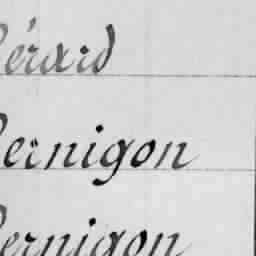 érard
ernigon
ernigon